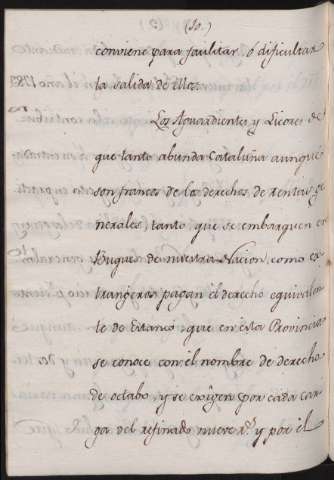 (10.)
conviene para facilitar ó dificultar
la salida de ellos.
Los Aguardientes y Licores de
que tanto abunda Cataluña aunque
son francos de los derechos de Rentas Ge
nerales, tanto que se embarquen en
Buques de nuestra Nacion, como ex
trangeros pagan el derecho equivalen
te de Estanco que en esta Provincia
se conoce con el nombre de derecho
de octabo, y se exigen por cada car
ga del refinado nueve r.s y por el